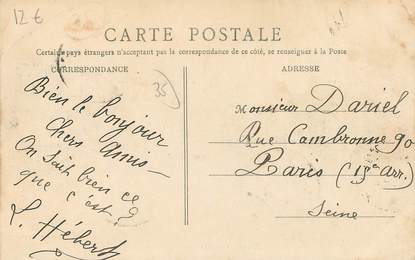 12 €
CARTE POSTALE
Certains pays étrangers n'acceptant pas la correspondance de ce côté, se renseigner à la Poste
CORRESPONDANCE
ADRESSE
35
Bien le bonjour
chers amis —
On sait bien ce
que c'est ?
L. Hébert
Monsieur Dariel
Rue Cambronne 90
Paris (15e arr.)
Seine